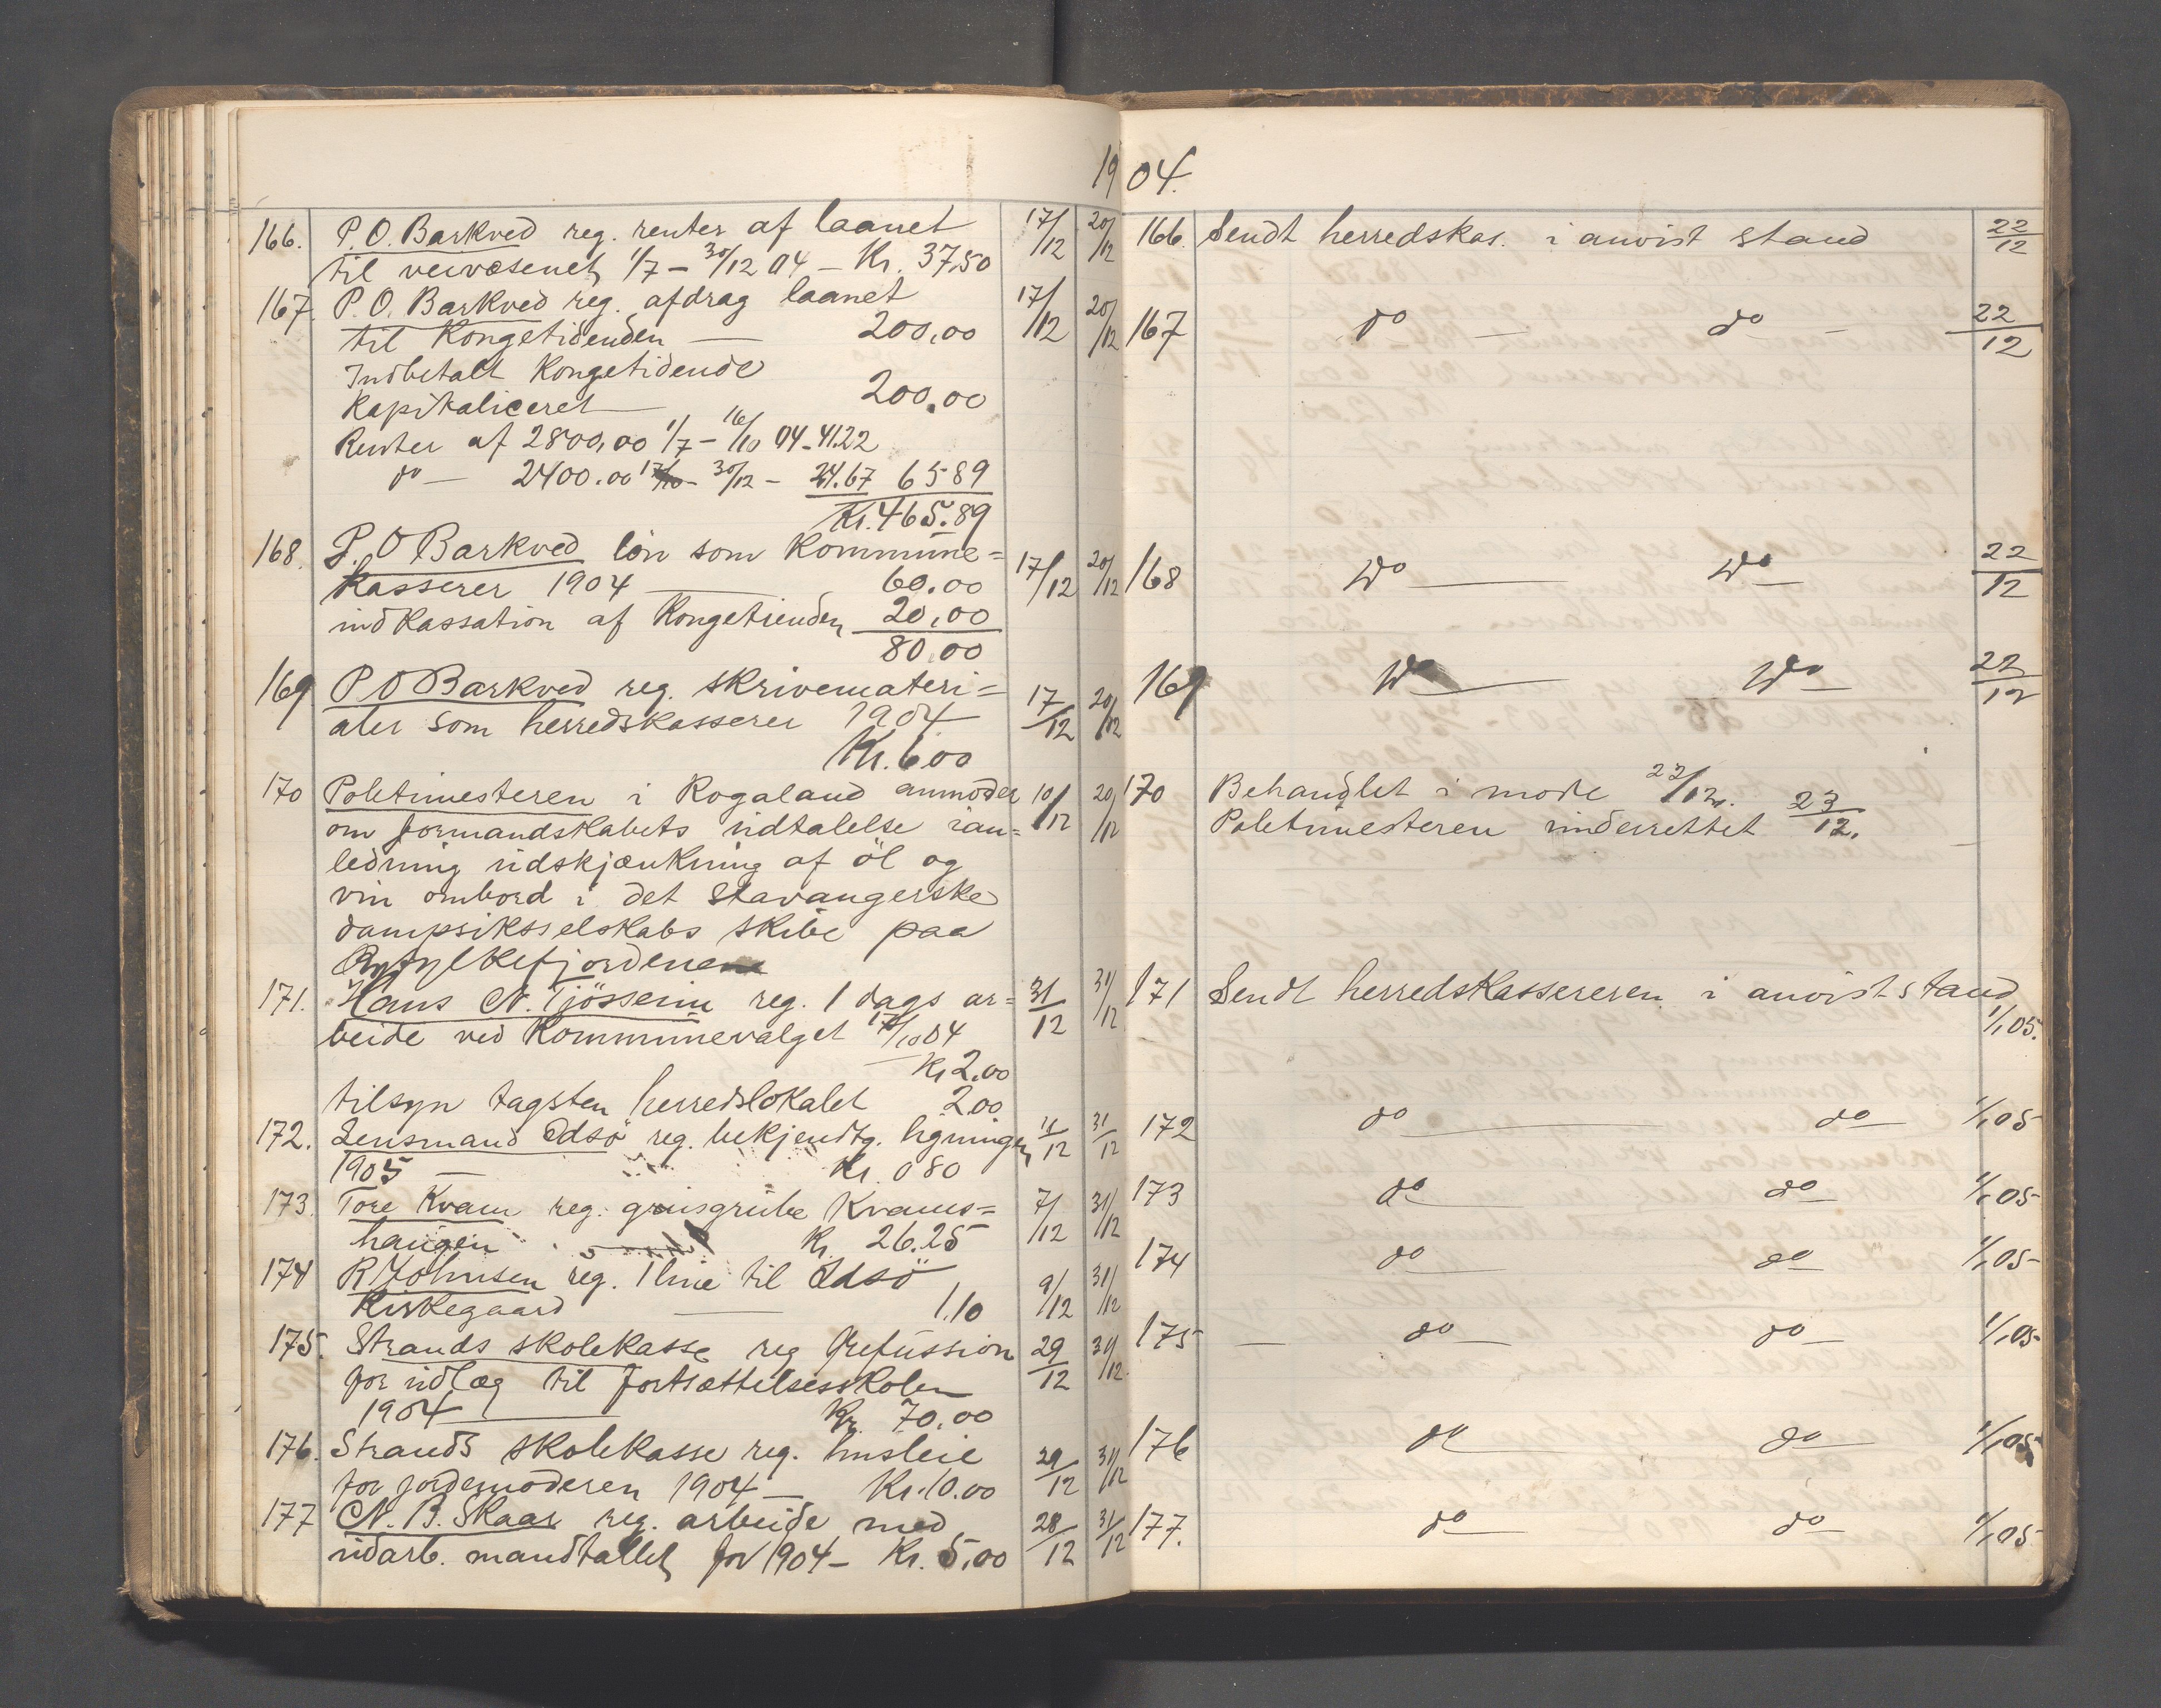 1904.
166. P. O. Barkved reg. renter af laanet 17/12 20/12
til veivæsenet 1/7 – 30/12 04 – Kr. 37,50
167. P. O. Barkved reg. afdrag laanet 17/12 20/12
til Kongetidenden — 200,00
Indbetalt Kongetidende
Kapitaliceret — 200,00
Renter af 2800,00 1/7 – 16/10 04 – 41.22
do — 2400.00 17/10 – 30/12 – 24.67 65 89
Kr. 465.89
168. P. O Barkved lön som Kommune= 17/12 20/12
kasserer 1904 — 60.00
indkassation af Kongetienden 20,00
80.00
169 P O Barkved reg. skrivemateri= 17/12 20/12
aler som herredskasserer 1904
Kr. 6 00
170 Politimesteren i Rogaland anmoder 10/12 20/12
om formandskabets udtalelse ian=
ledning udskjænkning af öl og
vin ombord i det Stavangerske
dampsiksselskabs skibe paa
Ryfylkefjordene
171. Hans N. Tjösseim reg. 1 dags ar= 31/12 31/12
beide ved Kommunevalget 17/10 04
Kr 2.00
tilsyn tagsten herredslokalet 2.00
172. Lensmand Idsö reg. bekjendtg. ligningen 31/12
1905 — Kr. 0 80
173. Tore Kvam reg. grusgrube Kvams= 7/12 31/12
haugen Kr. 26.25
174 R Johnsen reg. 1 line til Idsö 9/12 31/12
Kirkegaard — 1.10
175. Strands skolekasse reg Refussion 29/12 31/12.
for udlæg til fortsættelsesskolen
1904 — Kr. 70.00
176. Strands skolekasse reg. husleie 29/12 31/12
for jordemoderen 1904 — Kr. 10.00
177 N. B. Skaar reg. arbeide med 28/12 31/12
udarb. mandtallet for 1904 – Kr. 5,00
166. Sendt herredskas. i anvist stand 22/12
167 do — do — 22/12
168 Do — Do 22/12
169 Do — Do — 22/12
170 Behandlet i möde 22/12.
Politimesteren underrettet 23/12.
171 Sendt herredskassereren i anvist stand
1/1 05.
172 do — do — 1/1 05
173 do — do — 1/1 05
174 do — do — 1/1 05
175 — do — do — 1/1 05
176 do — do — 1/1 05
177. do — do — 1/1 05